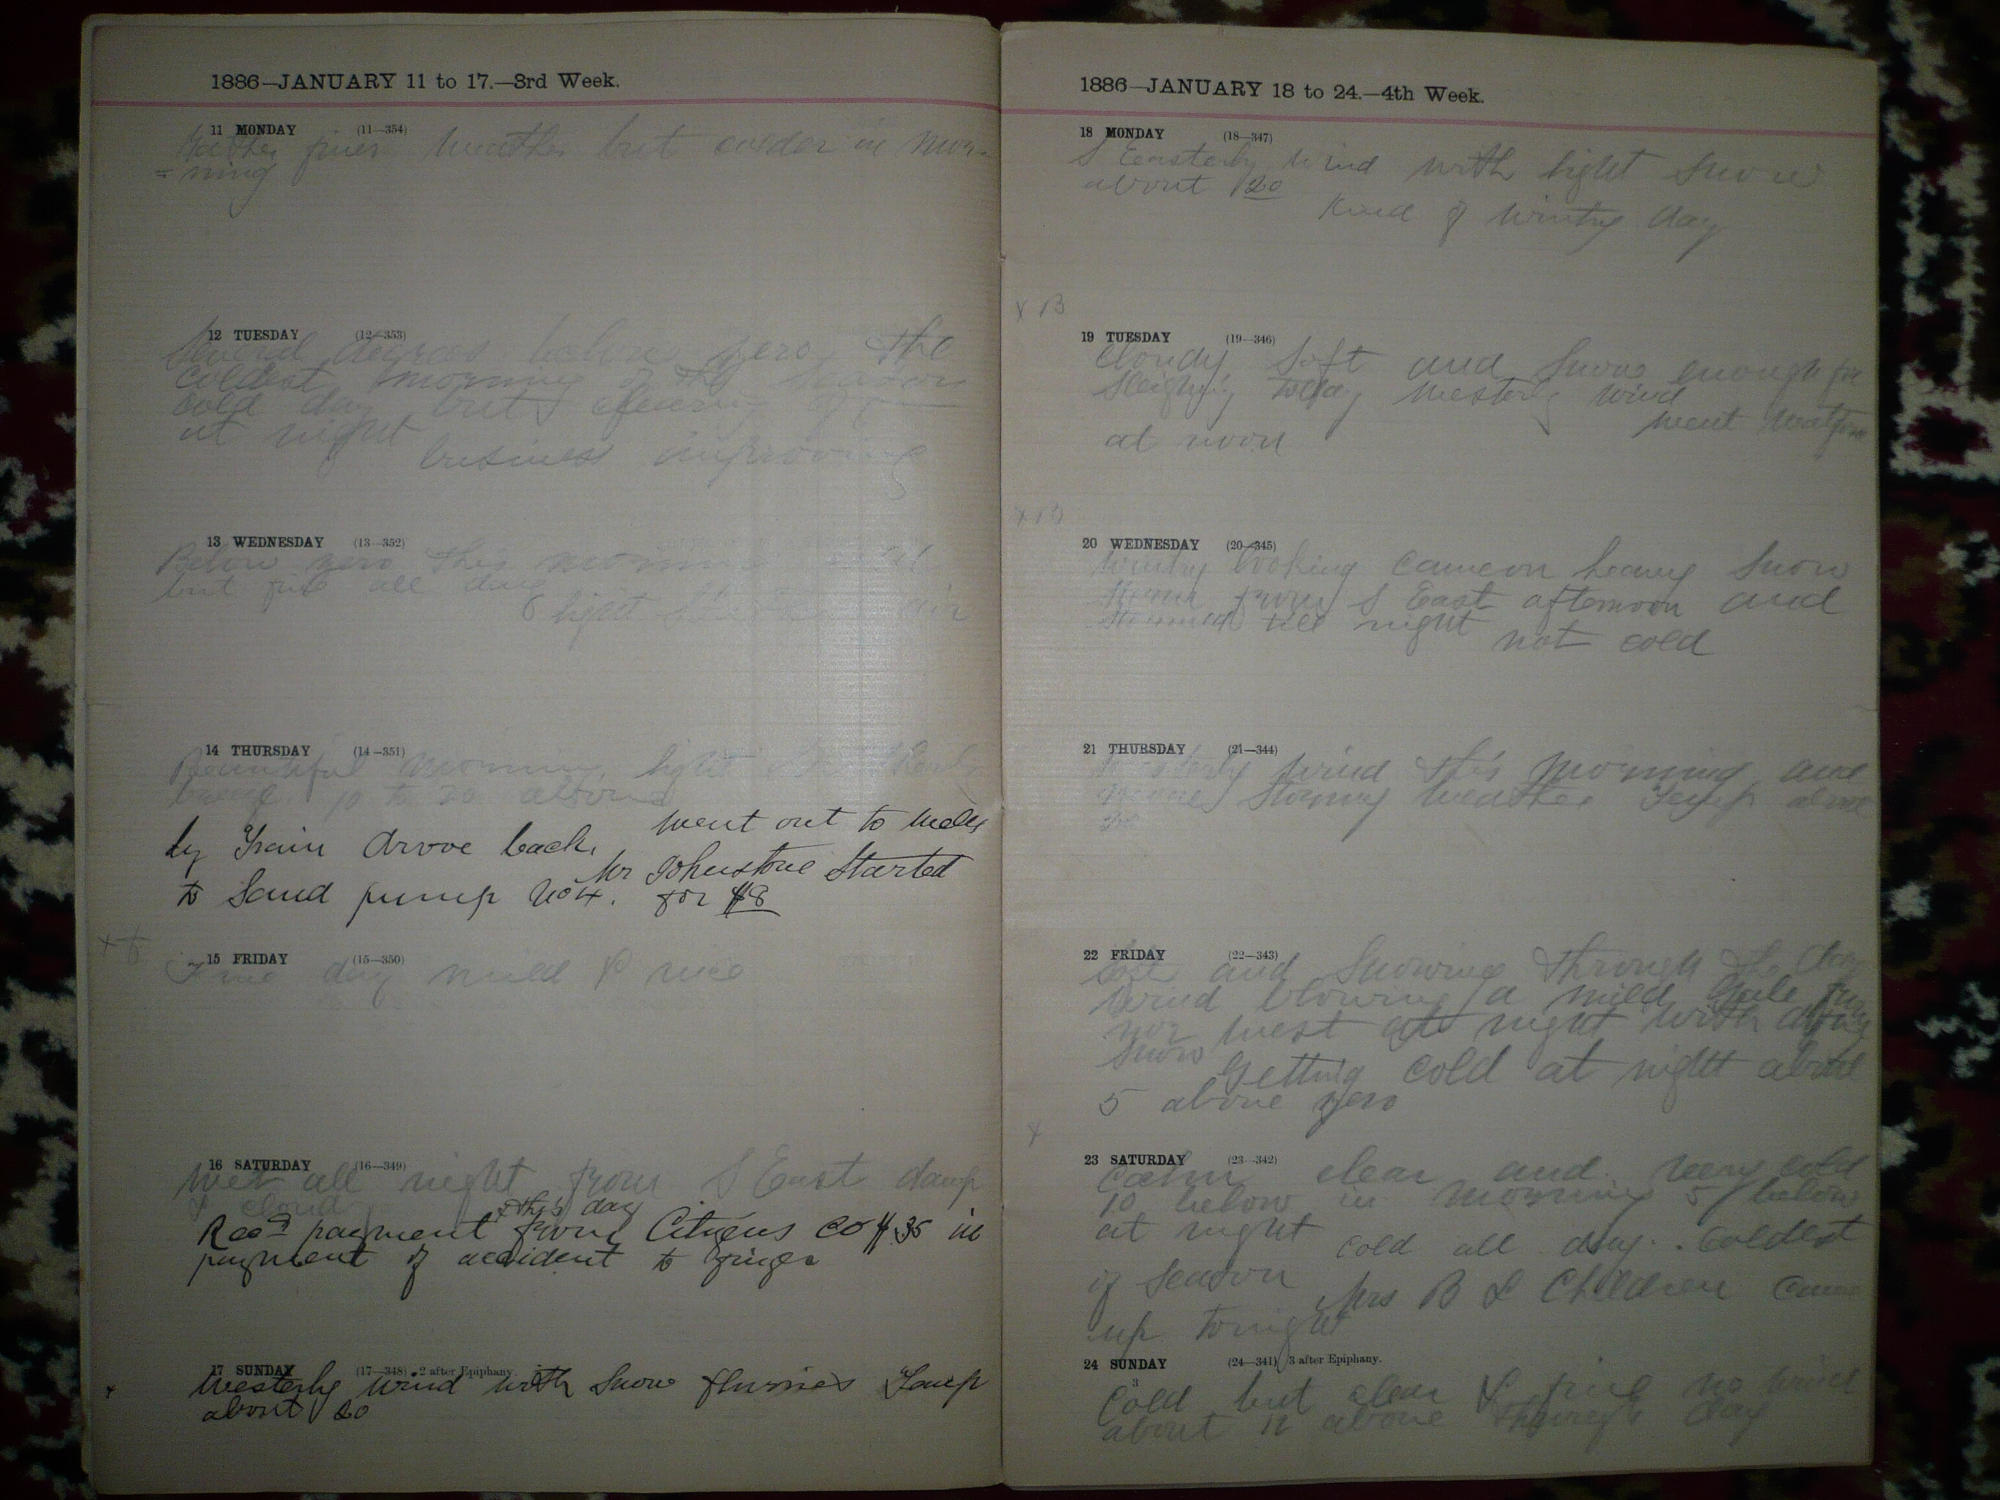 1886—JANUARY 11 to 17.—3rd Week.
11 MONDAY (11—354)
weather but colder in mor-
=ning
12 TUESDAY (12—353)
Several degrees below zero the
coldest morning of the Season
cold day but
at night
business improving
13 WEDNESDAY (13—352)
Below zero this
but fine all day
light
14 THURSDAY (14—351)
Beautiful morning light
10 to 20 above
went out to wells
by Train drove back.
Mr Johnstone Started
to Sand pump No 4. for $8
15 FRIDAY (15—350)
Fine day mild & nice
16 SATURDAY (16—349)
Wet all night from S East damp
& cloudy
this day
Recd payment from Citizens Co $35 in
payment of accident to finger
17 SUNDAY (17—348) 2 after Epiphany.
Westerly wind with Snow flurries Temp
about 20
1886—JANUARY 18 to 24.—4th Week.
18 MONDAY (18—347)
S Easterly wind with light Snow
about 20
Kind of wintry day
x B
19 TUESDAY (19—346)
Cloudy Soft and Snow enough for
Sleighing today westerly wind
went
at noon
20 WEDNESDAY (20—345)
Wintry looking came on heavy Snow
from S East afternoon and
till night
not cold
21 THURSDAY (21—344)
wind this morning and
Stormy weather Temp above
22 FRIDAY (22—343)
and Snowing through the day
Wind blowing a mild Gale from
nor west at night with
Snow
Getting cold at night about
5 above zero
x
23 SATURDAY (23—342)
Calm clear and very cold
10 below in morning 5 below
at night
cold all day. Coldest
of Season
Mrs B & Children Came
up tonight
24 SUNDAY (24—341) 3 after Epiphany.
Cold but clear & fine no wind
about 12 above through day